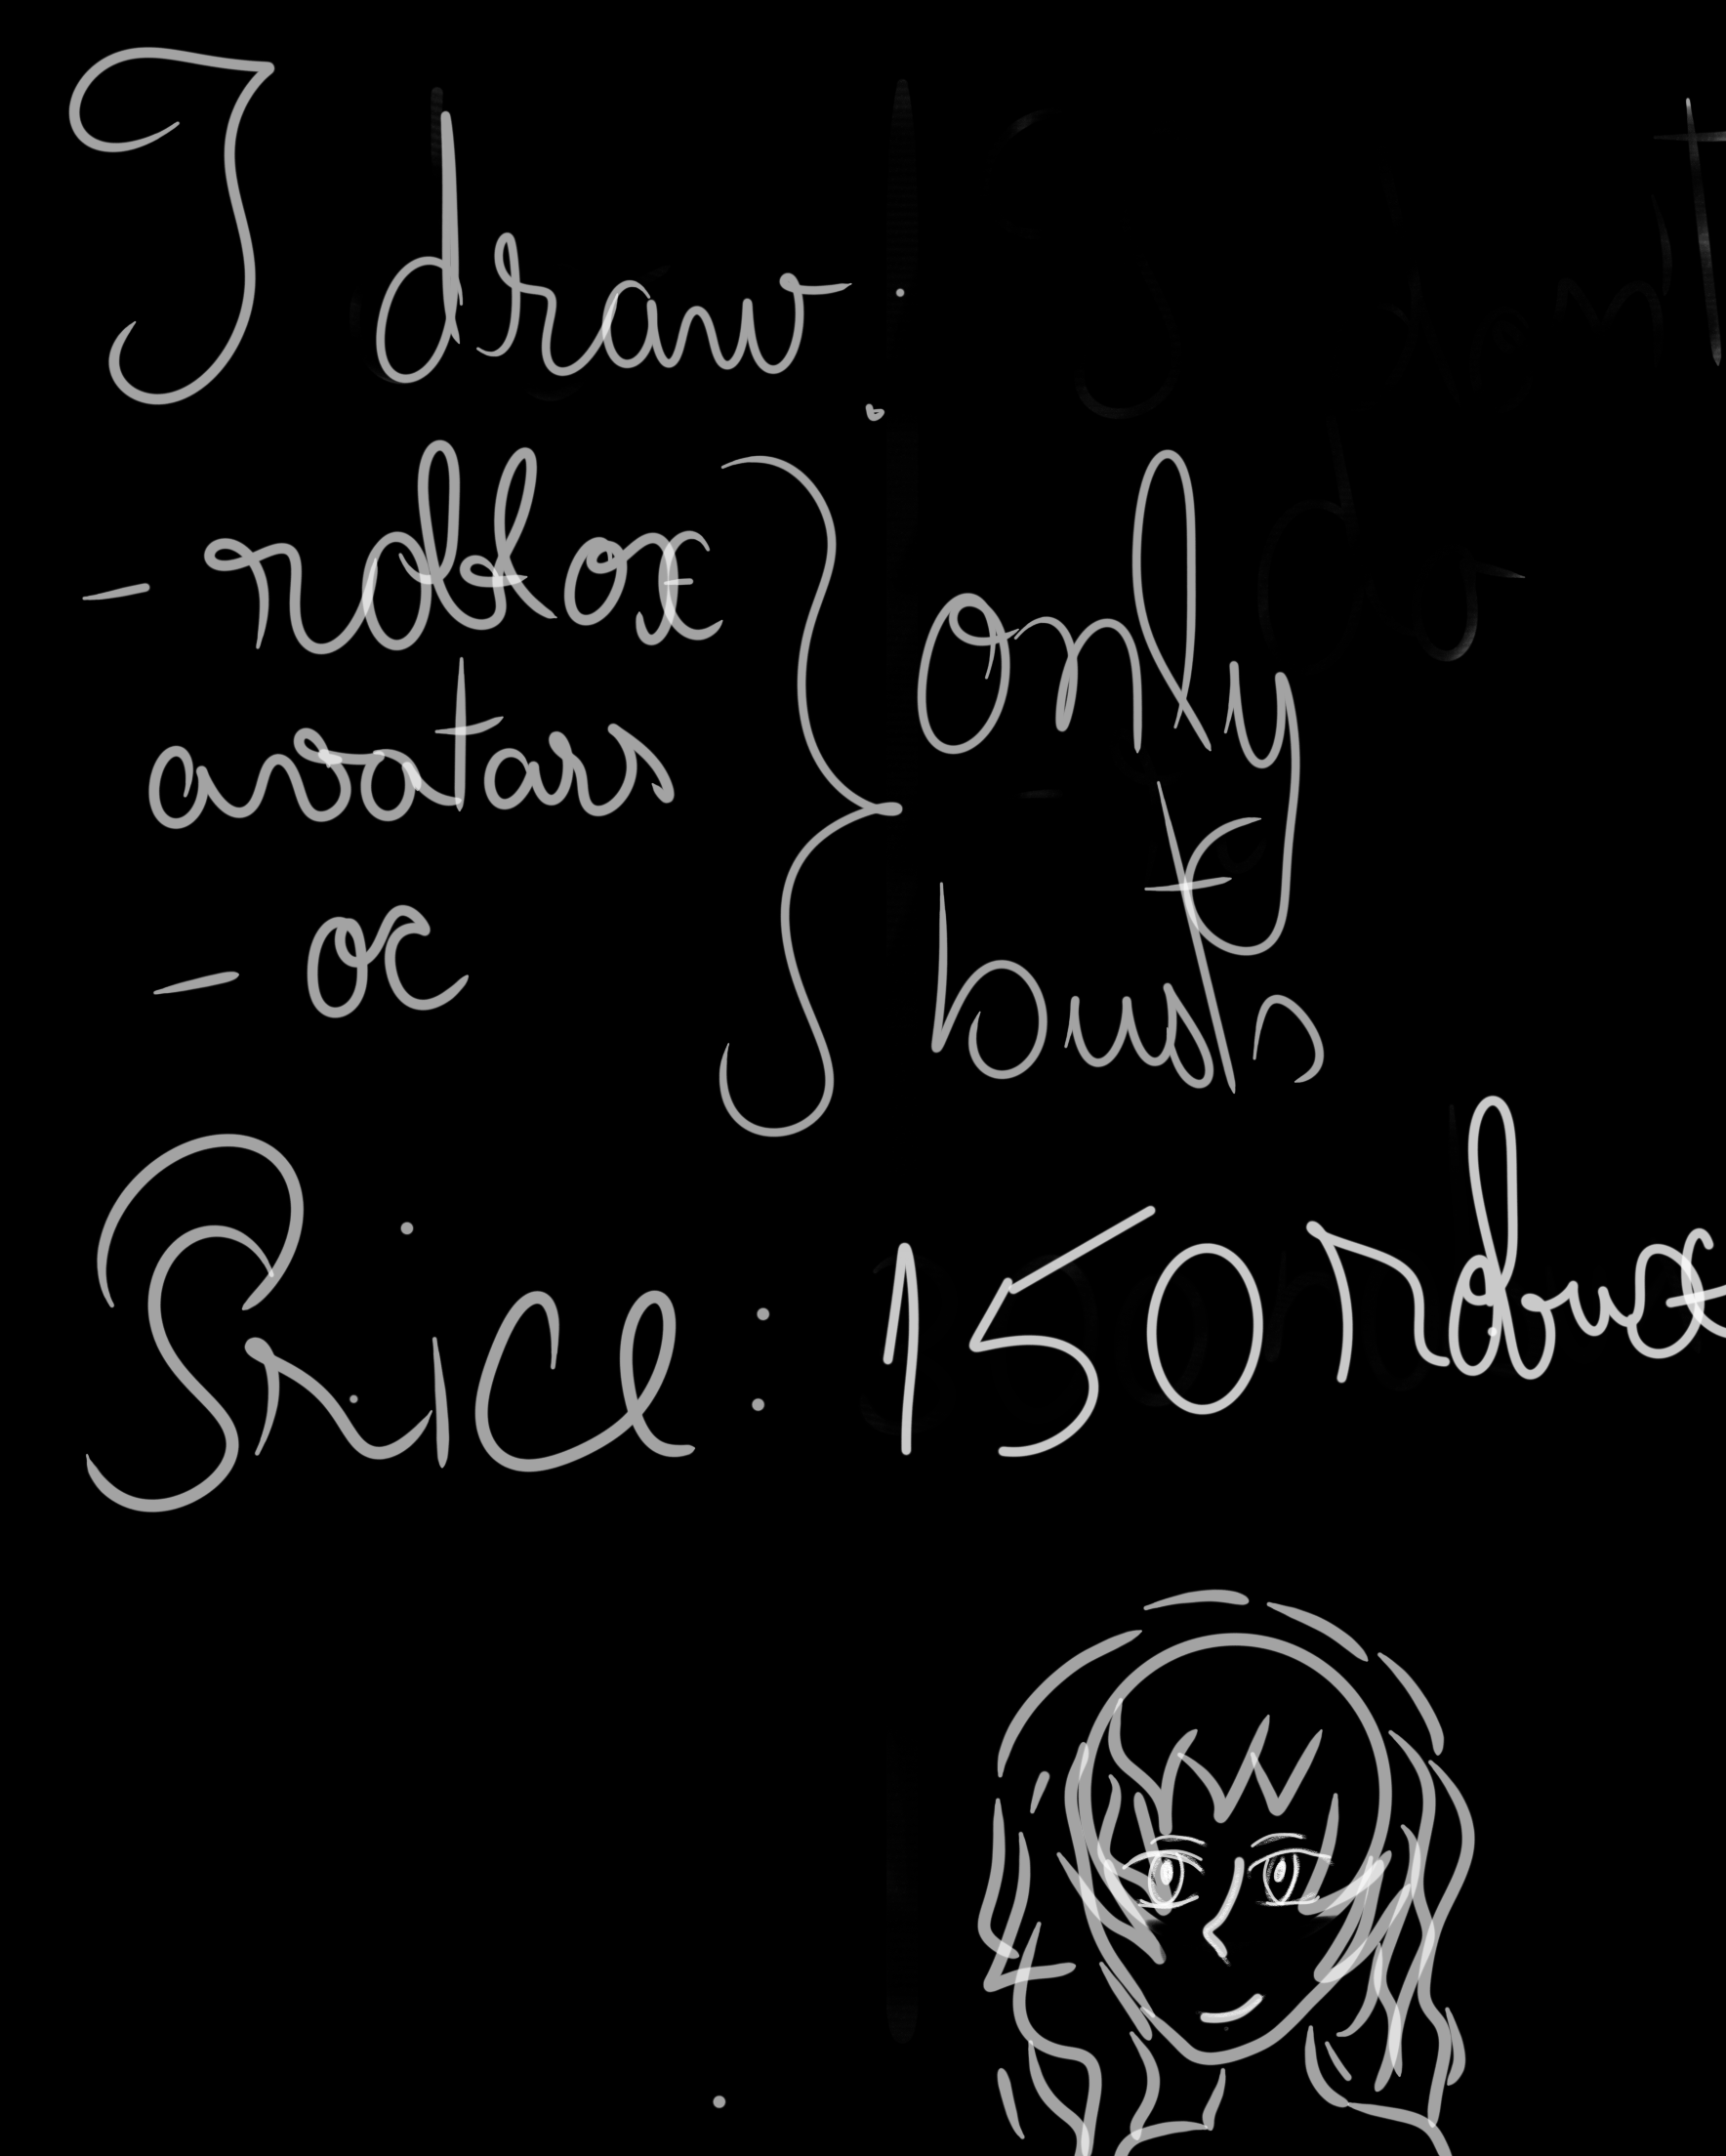 I draw:
- roblox
avatars
- oc
only
busts
Price: 150 robux